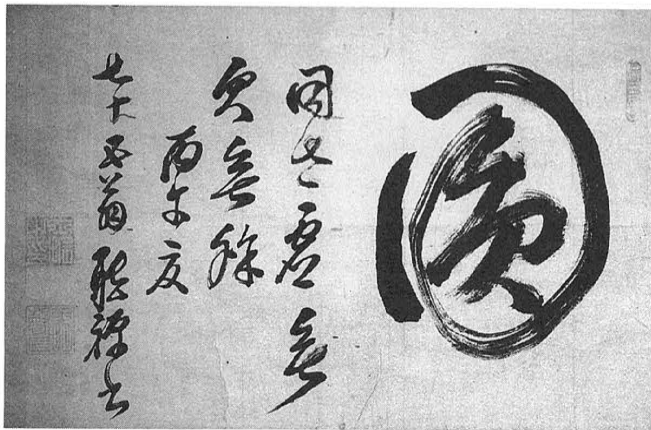 圓
同太虚無
欠無餘
丙午夏
七十五翁聴禅書